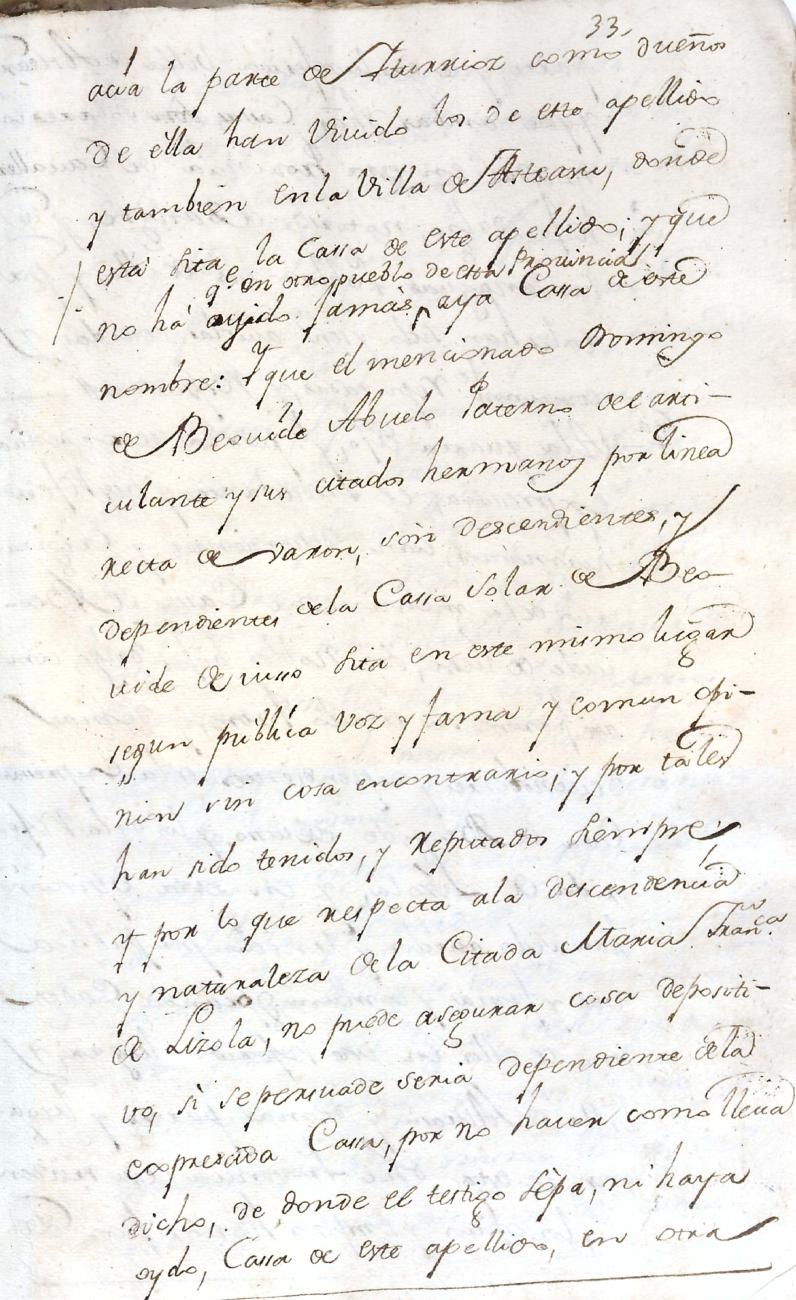 33
acia la parte de Iturrioz como dueños
de ella han vivido los de este apellido
y tambien en la Villa de Asteasu, donde
está sita la Cassa de este apellido; y que
qe en otro pueblo de esta Provincia
no há oyido Jamas, aya Cassa de este
nombre: Y que el mencionado Domingo
de Beovide Abuelo Paterno del arti-
culante y sus citados hermanos por linea
recta de varon, són descendientes, y
dependientes de la Cassa Solar de Beo-
vide de iusso sita en este mismo lugar
segun publica voz y fama y comun opi-
nion sin cosa encontrario; y por tales
han sido tenidos, y reputados siempre;
y por lo que respecta ala descendencia
y naturaleza de la Citada Maria Franca
de Lizola, no puede asegurar cosa depositi-
vo, si se persuade seria dependiente de la
expresada Cassa, por no haver como lleva
dicho, de donde el testigo sepa, ni haya
oydo, Cassa de este apellido, en otra